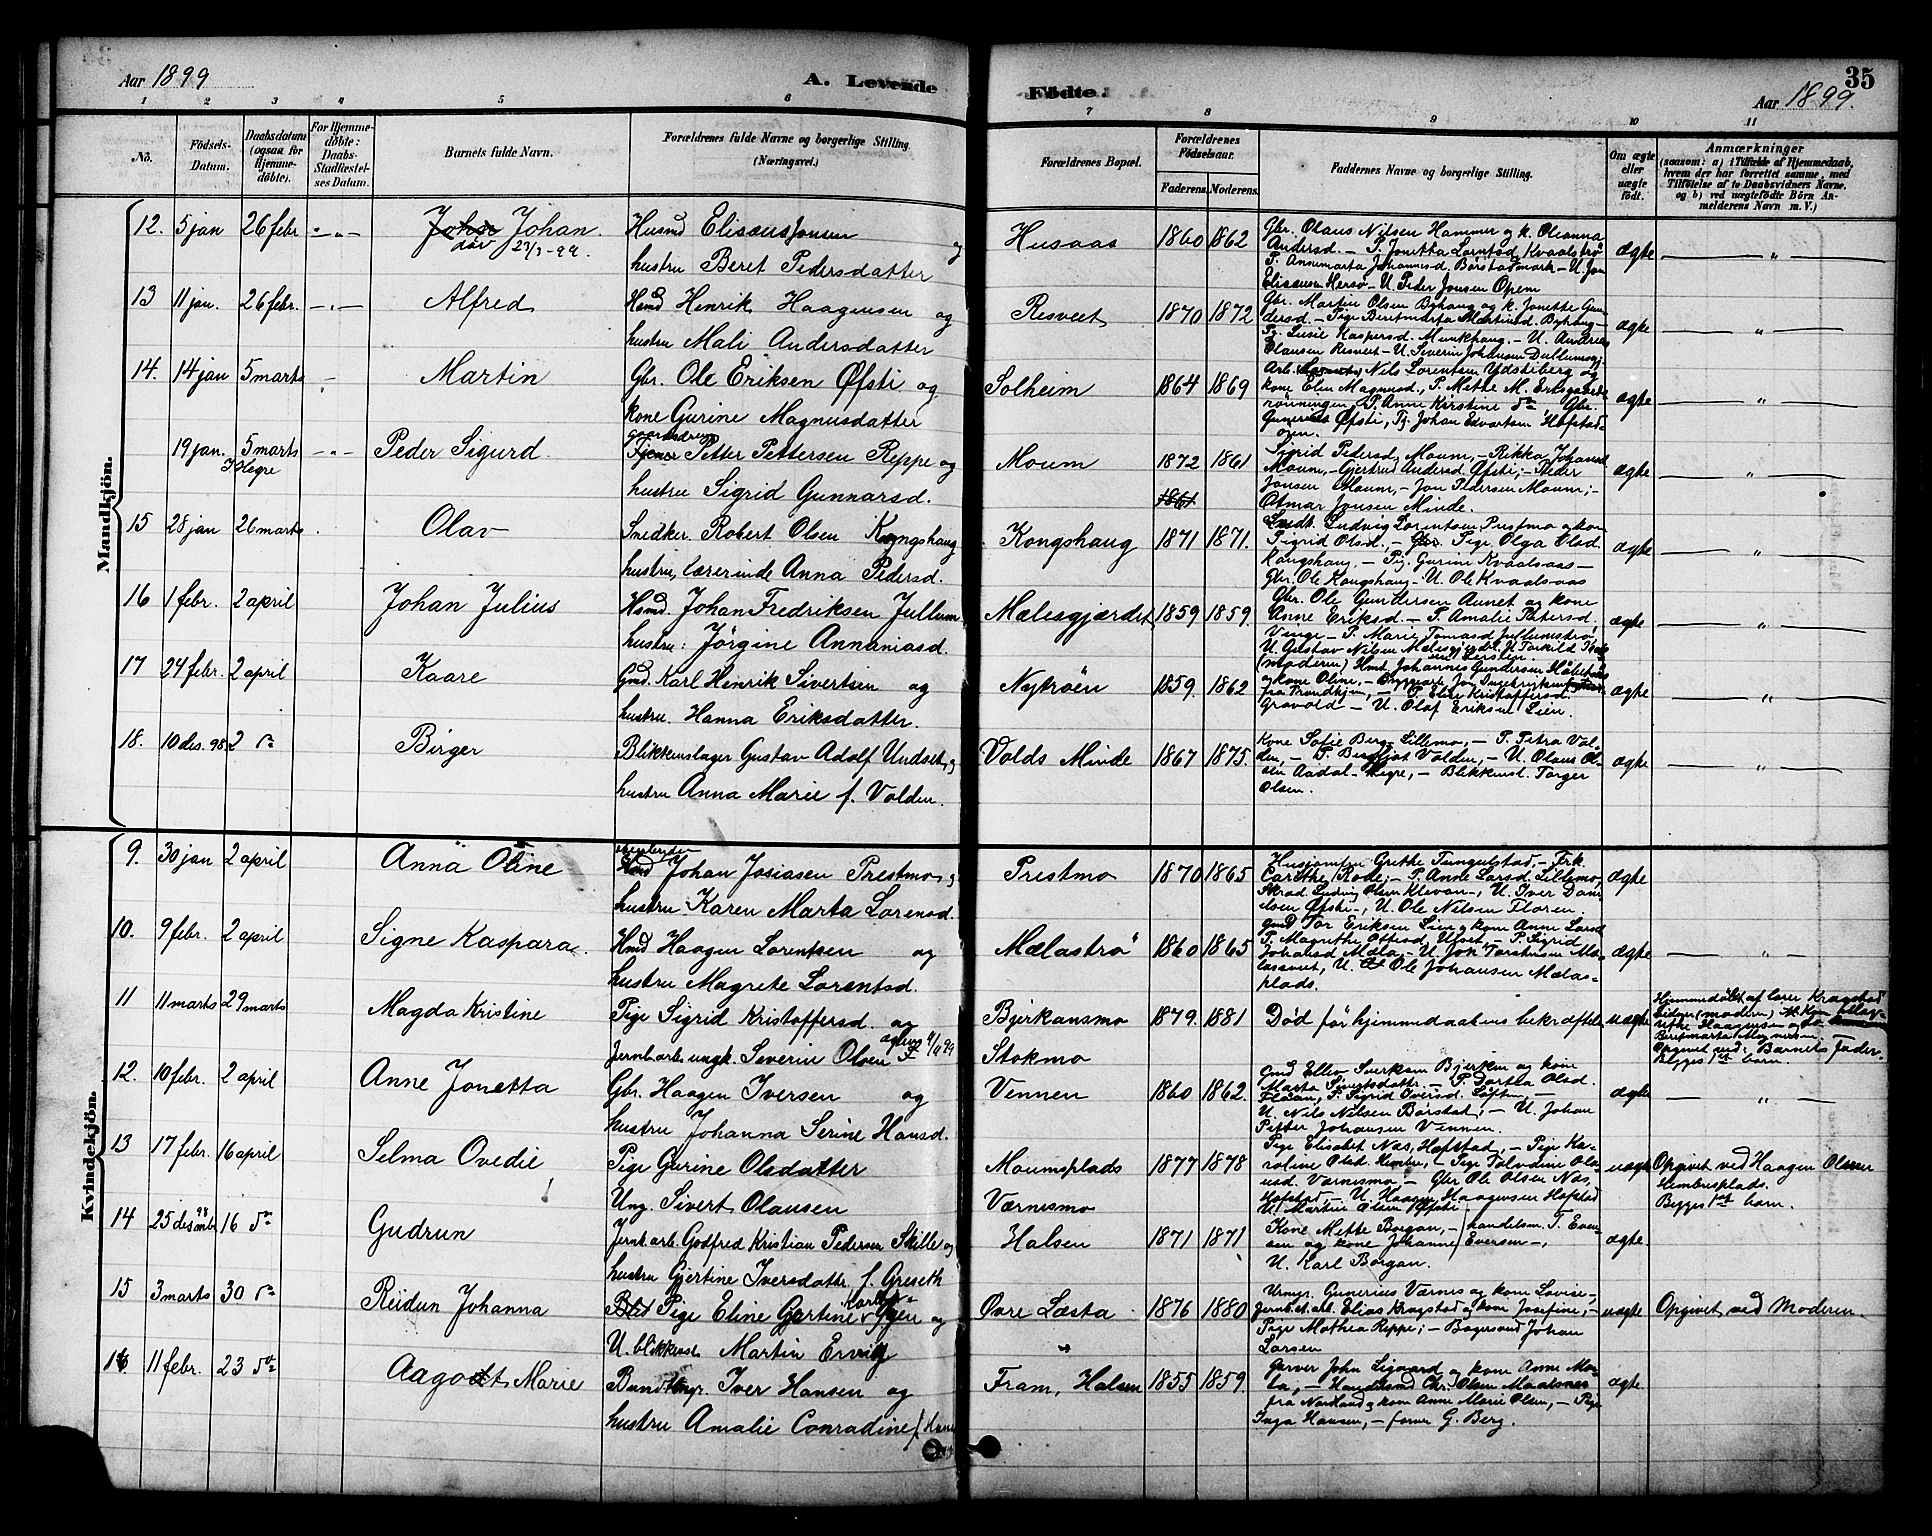 35
Aar 1899
A. Levende Födte.
Aar 1899.
1 2 3 4 5 6 7 8 9 10 11
No.
Födsels-
Datum.
Daabsdatum
(ogsaa for
Hjemme-
döbte).
For Hjemme-
döbte:
Daabs-
Stadfestel-
ses Datum.
Barnets fulde Navn.
Forældrenes fulde Navne og borgerlige Stilling.
(Næringsvei.)
Forældrenes Bopæl.
Forældrenes
Födselsaar.
Faderens. Moderens.
Faddernes Navne og borgerlige Stilling.
Om ægte
eller
uægte
födt.
Anmærkninger
(saasom: a) i Tilfælde af Hjemmedaab,
hvem der har forrettet samme, med
Tilföielse af to Daabsvidners Navne,
og b) ved uægtefödte Börn An-
melderens Navn m. V.)
Mandkjön.
12. 5 jan 26 febr. Johan Johan.
döv 27/3-99.
Husmd Elisæus Jonsen og
hustru Beret Pedersdatter
Husaas 1860 1862
Gbr. Olaus Nilsen Hammer og k. Oleanna
Andersd. - P. Jonetta Lorntsd. Kvaalströ
P. Annemarta Johannesd. Börstadmark - U. Jon
Eliseusen Hersö - U. Peder Jonsen Opem
ægte
13 11 jan. 26 febr. Alfred
Hsmd Henrik Haagensen og
hustru Mali Andersdatter
Resveet 1870 1872
Gbr. Martin Olsen Byhaug og k. Jonette Gun-
dersd. - Pige Beretmarta Martinsd. Byhaug -
Pg. Lusie Kaspersd. Munkhaug. - U. Andreas
Olausen Resveet - U. Severin Johansen Dullumsgj.
ægte
14. 14 jan 5 marts Martin
Gbr. Ole Eriksen Øfsti og
kone Gurine Magnusdatter
Solheim 1864 1869
Arb. Nils Lorentsen Ydstiberg og
kone Elen Magnusd., P. Mette M. Eriksgaards-
rönningen, P. Anne Kirstine do Gbr.
Gunerius Øfsti, Tj. Johan Edvartsen Hofstad-
öien.
ægte
19 jan. 5 marts Peder Sigurd.
I Hegre
gaardsdreng
Tjener Petter Pettersen Reppe og
hustru Sigrid Gunnarsd.
Moum 1872 1861
1861
Sigrid Pedersd. Moum, - Rikka Johansd
Moum, - Gjertrud Andersd. Øfsti, - Peder
Jonsen Moum, - Jon Pedersen Moum; -
Otmar Jonsen Minde.
ægte
15 28 jan 26 marts Olav
Snedker. Robert Olsen Kongshaug
hustru, lærerinde Anna Pedersd.
Kongshaug 1871 1871.
Snedk. Ludvig Lorentsen Prestmo og kone
Sigrid Olsd. - Gbr. Pige Olga Olsd.
Kongshaug. - Pg. Gurine Kvaalsaas -
Gbr. Ole Kongshaug - U. Ole Kvaalsaas
ægte
16 1 febr. 2 april Johan Julius
Hsmd. Johan Fredriksen Jullum
hustru: Jörgine Annaniasd.
Mælesgjærdet 1859 1859.
Gbr. Ole Gundersen Aunet og kone
Anne Eriksd. - P. Amalie Petersd.
Vinge - P. Marie Tomasd. Jullumströ
U. Gustav Nilsen Mælesgjerdet. U. Torkild
ægte
17 24 febr. 2 april Kaare
Gmd. Karl Henrik Sivertsen og
hustru. Hanna Eriksdatter.
Nytröen 1859. 1862
(moderen) Hmd. Johannes Gundersen
og kone Oline, - 
fra Trondhjem, - P. Elise Kristoffersd.
Gravold - U. Olaf Eriksen Lien.
ægte
18. 10 des. 98. 2 do Birger
Blikkenslager Gustav Adolf Undset og
hustru Anna Marie f. Volden.
Volds Minde 1867 1875.
Kone Sofie Berg, Lillemo, - P. Petra Vol-
den, - P. Bergljot Volden, - U. Olaus Ol-
sen Aadal-Hegre, - Blikkensl. Torger
Olsen.
ægte
Kvindekjön.
9. 30 jan 2 april Anna Oline
Hmd Johan Josiasen Prestmo og
hustru Karen Marta Lorensd.
Prestmo 1870 1865
Husjomfru Grethe Tungulstad, - Frk.
Carethe Rode, - P. Anne Larsd. Lillemo,
Skrad. Ludvig Olsen Klevan, U. Iver Dan-
ielsen Øfsti -, U. Ole Nilsen Floren.
ægte
10. 9 febr. 2 april Signe Kaspara.
Hmd Haagen Lorentsen og
hustru Magrete Lorentsd.
Mælaströ 1860 1865
Gmd Tor Eriksen Lien og kone Anne Larsd
P. Magrethe Ottesd. - P. Sigrid
Johansd Mæla, - U. Jon Torstensen Mæ-
lasaunet, U. Ole Johansen Mælas-
plads.
ægte
11 11 marts 29 marts Magda Kristine
Pige Sigrid Kristoffersd. og
Jernb. arb. ungk. Severin Olsen
Bjerkansmo 1879. 1881
Stokmo
Död för hjemmedaabens bekræftelse
uægte
Hjemmedöbt af lærer Kragstad
Vidner: (moderen) Mag-
rethe Haagensen og
Beretmarta Magnusen. -
Opgivet ved: Barnets fader.
Begges 1ste barn
12. 10 febr. 2 april Anne Jonetta
Gbr. Haagen Iversen og
hustru Johanna Serine Hansd.
Vennen 1860 1862.
Gmd Ellev Sverksen Bjerken og kone
Marta Sivertsdattr. - P. Dortea Olsd.
Flöan, P. Sigrid Iversd. -
U. Nils Nilsen Börstad, - U. Johan
Petter Johansen Vennen.
ægte
13 17 febr. 16 april Selma Ovedie
Pige Gurine Olsdatter
Ung. Sivert Olausen
Moumsplads 1877 1878
Værnesmo
Pige Elisabet Næs, Hofstad, - Pige Ka-
roline Olsd. Himber, - Pige Tolvdine Ola-
usd. Værnesmo - Gbr Ole Olsen Næs,
Hofstad - U. Haagen Haagensen Hofstad
U. Martin Olsen Øfsti
uægte
Opgivet ved Haagen Olsen
Himbresplads.
Begges 1ste barn.
14 25 desmbr 98 16 do Gudrun
Jernb. arb. Godfred Kristian Pedersen Skille og
hustru Gjertine Iversdattr. f. Greseth
Halsen 1871 1871
Kone Mette Borgan, - handelsm. T. Even-
sen og kone Johanne Evensen -,
U. Karl Borgan.
ægte.
15 3 marts 30 do Reidun Johanna
Pige Eline Gjertine Karls- og
U. blikkensl. Martin Ervig
Øvre Læsta 1876 1880
"
Urmgr. Gunerius Værnes og kone Lovise -
Jernb. st. arb. Elias Kragstad og kone Josefine; -
Pige Mathea Reppe; - Bagersvend Johan
Larsen
uægte
Opgivet ved Moderen.
16 11 febr. 23 do Aagodt Marie
Bundtmgr. Iver Hansen og
hustru Amalie Conradine f.
Fram, Halsen 1855 1859.
Garver John Sigvard og kone Anne Mar-
ta, - Handelsmd Chr. Olsen Maalsnes
fra Nordland og kone Anne Marie Olsen, - Pige
Inga Hansen, - forv. G. Berg.
ægte.